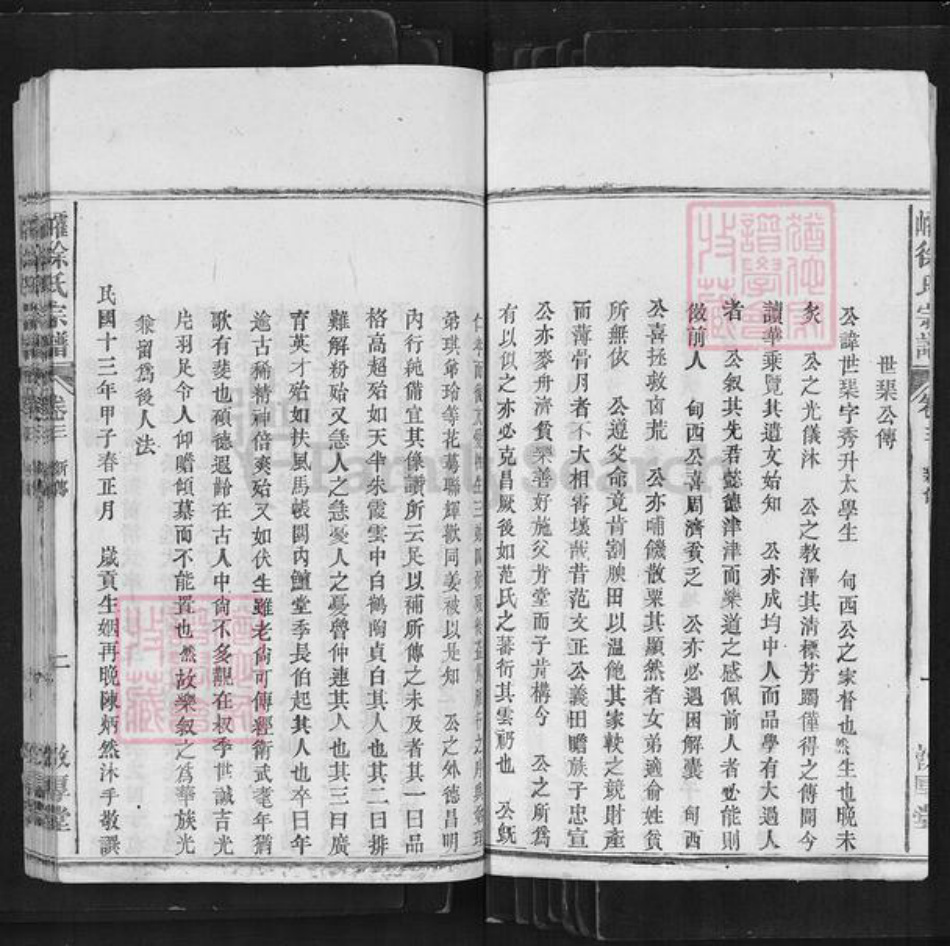 世琹公傳
公諱世琹字秀升太學生 甸西公之家督也然生也晚未
炙 公之光儀沐 公之教澤其清標芳躅僅得之傳聞今
讀華乘覽其遺文始知 公亦成均中人而品學有大過人
者 公叙其先君懿德津津而樂道之感佩前人者必能則
傚前人 甸西公喜周濟貧乏 公亦必遇困解囊 甸西
公喜拯救甾荒 公亦哺饑散粟其顯然者女弟適俞姓貧
所無依 公遵父命竟肯割腴田以温飽其家較之競財產
而薄骨月者不大相霄壤哉昔范文正公義田贍族子忠宣
公亦麥舟濟貧樂善好施父肯堂而子肯構今 公之所為
有以似之亦必克昌厥後如范氏之蕃衍其雲礽也 公旣
弟琪爺玲等花萼聯輝歡同姜被以是知 公之外德昌明
內行純備宜其像讚所云足以補所傳之未及者其一曰品
格高超殆如天半朱霞雲中白鶴陶貞白其人也其二曰排
難解粉殆又急人之急憂人之憂魯仲連其人也其三曰廣
育英才殆如扶風馬帳關內鱣堂季長伯起其人也卒日年
逾古稀精神倍爽殆又如伏生雖老尙可傳經衛武耄年猶
歌有斐也碩德遐齡在古人中尙不多覯在叔季世誠吉光
片羽足令人仰瞻傾慕而不能置也然故樂叙之為華族光
兼留為後人法
民國十三年甲子春正月 歲貢生姻再晚陳炳然沐手敬譔
徐氏宗譜 卷三 新傳 二 敦厚堂